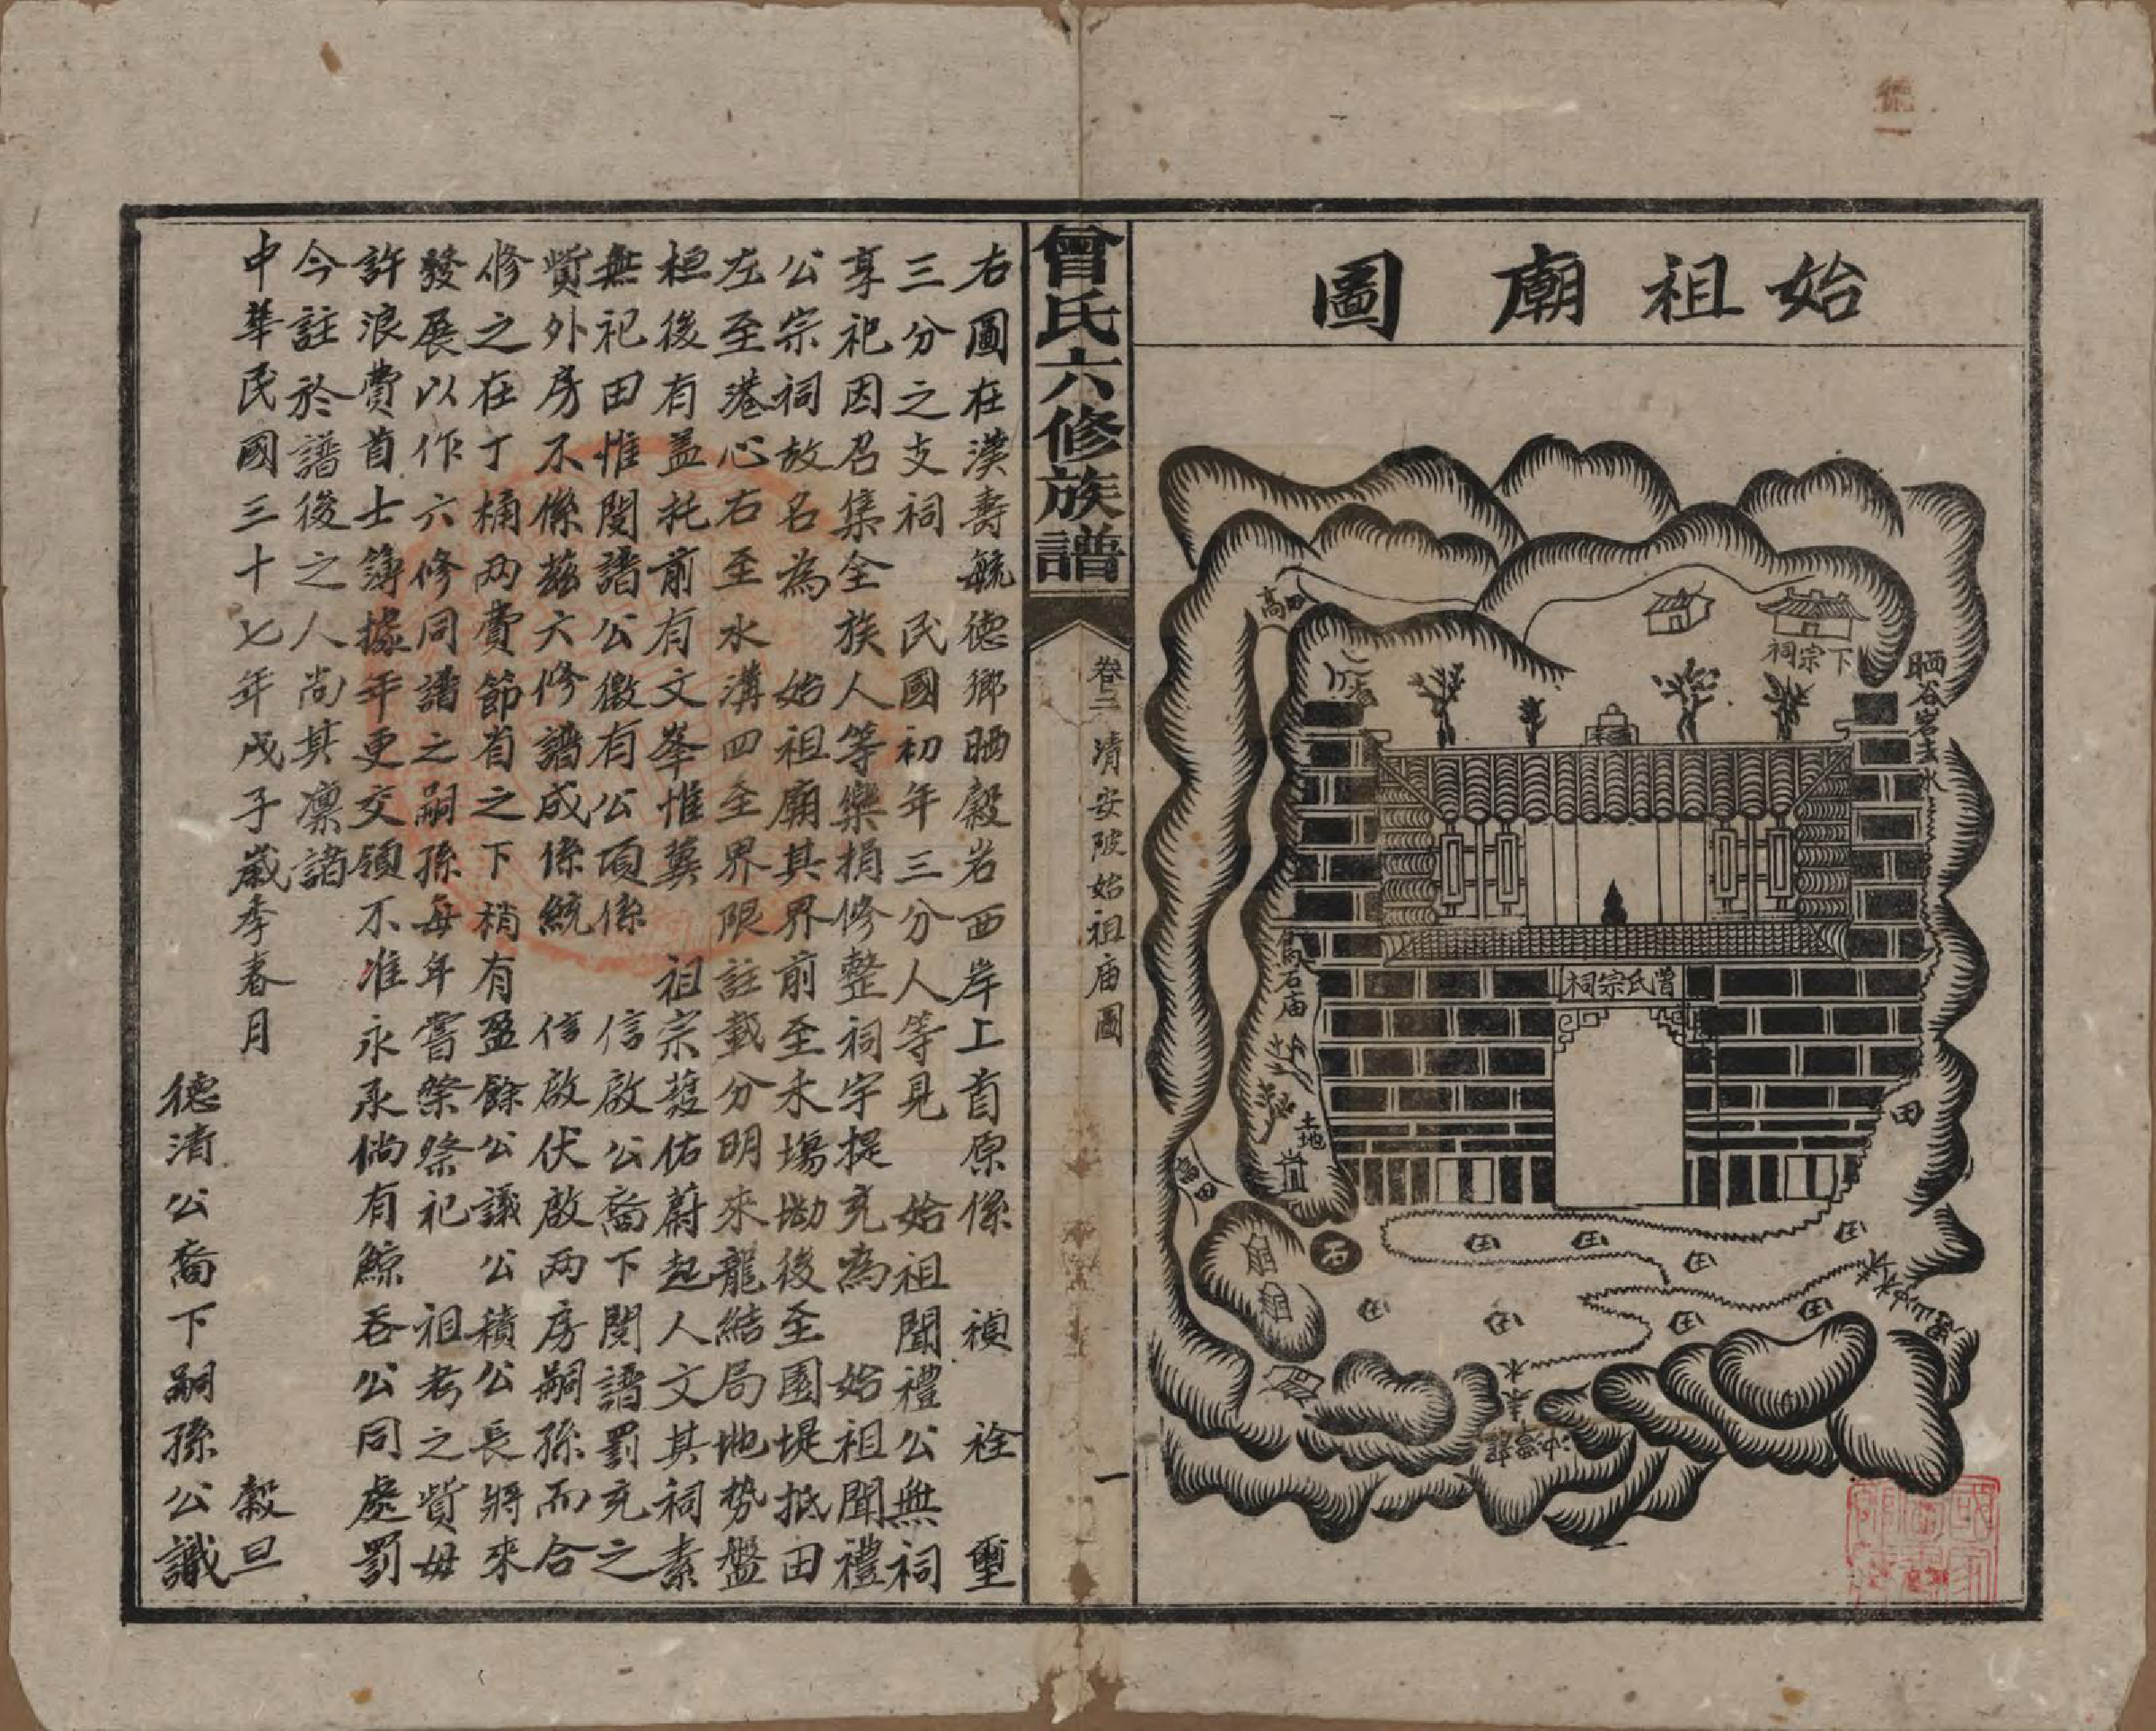 始祖廟圖
下宗祠
晒谷岩去水
曾氏宗祠
高石庙
土地
田
石
曾氏六修族譜
卷三
清安陂始祖庙圖
一
右圖在漢壽毓德鄉晒穀岩西岸上首原係 禎 祿 璽
三分之支祠 民國初年三分人等見 始祖聞禮公無祠
享祀因召集全族人等樂捐修整祠宇提充為 始祖聞禮
公宗祠故名為 始祖廟其界前至禾塲墈後至園堤抵田
左至港心右至水溝四至界限註載分明來龍結局地势盤
桓後有盖托前有文峯惟冀 祖宗蔭佑蔚起人文其祠素
無祀田惟閔譜公徽有公項係 信啟公裔下閔譜罰充之
貲外房不係茲六修譜成係統 信啟伏啟两房嗣孫而合
修之在丁桶两費節省之下稍有盈餘公議公積公長將來
發展以作六修同譜之嗣孫每年嘗祭祭祀 祖考之貲毋
許浪費首士簿據年更交領不准永永倘有鯨吞公同處罰
今註於譜後之人尚其凛諸
中華民國三十七年戊子歲季春月 穀旦
德清公裔下嗣孫公識